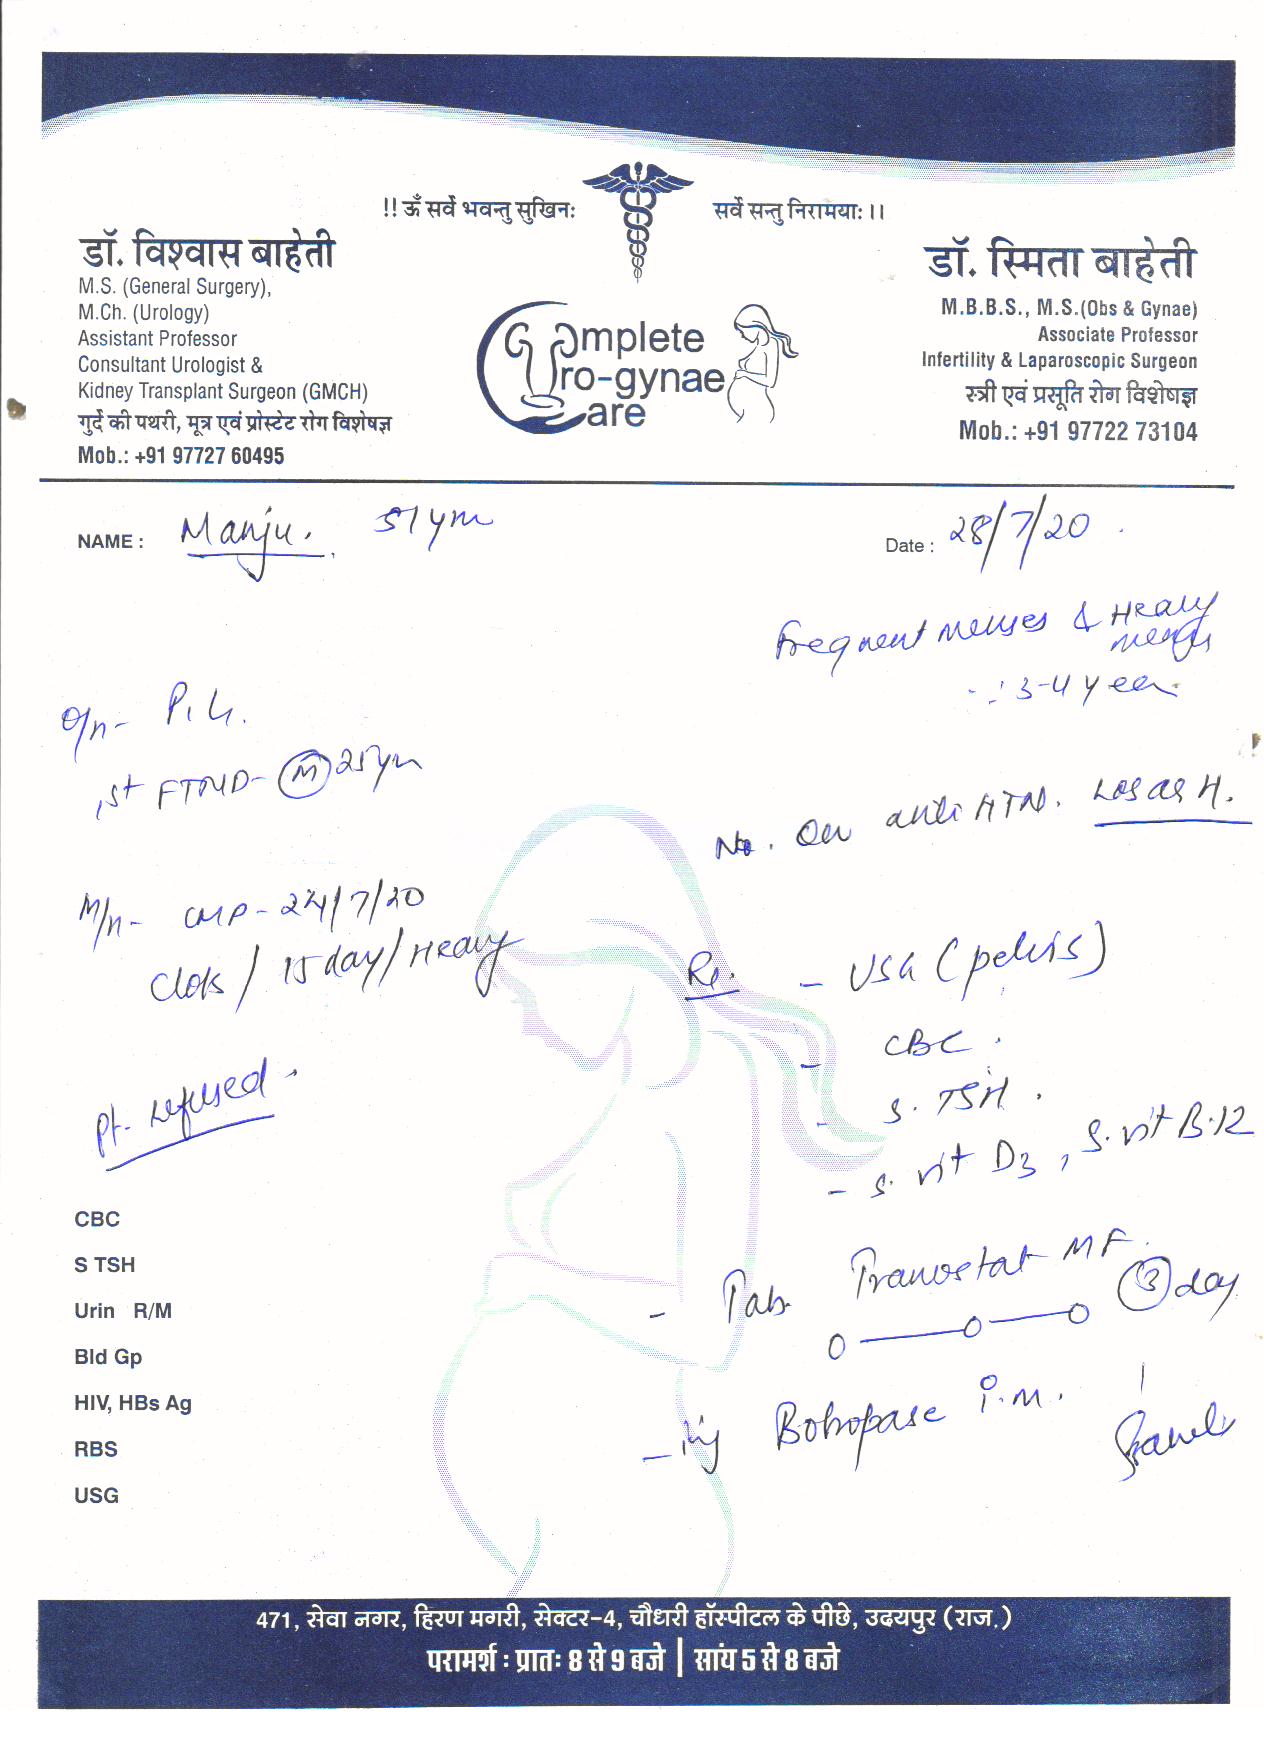 !! ॐ सर्वे भवन्तु सुखिनः सर्वे सन्तु निरामयाः ।।
डॉ. विश्वास बाहेती
M.S. (General Surgery),
M.Ch. (Urology)
Assistant Professor
Consultant Urologist &
Kidney Transplant Surgeon (GMCH)
गुर्दे की पथरी, मूत्र एवं प्रोस्टेट रोग विशेषज्ञ
Mob.: +91 97727 60495
Complete
Uro-gynae
Care
डॉ. स्मिता बाहेती
M.B.B.S., M.S.(Obs & Gynae)
Associate Professor
Infertility & Laparoscopic Surgeon
स्त्री एवं प्रसूति रोग विशेषज्ञ
Mob.: +91 97722 73104
NAME : Manju. 51 yrs
Date : 28/7/20
Frequent menses & Heavy
menses
3-4 year
O/H- P1L1.
1st FTND- M 25 yrs
on anti HTN. Losar H.
M/H- LMP- 24/7/20
Clots / 15 day / Heavy
Pt. refused
Rx.
- USG (pelvis)
- CBC.
- S. TSH.
- S. vit D3, S. vit B-12
- Tab. Tranostat MF.
0 — 0 — 0 3 day
- Inj Botropase i.m.
CBC
S TSH
Urin R/M
Bld Gp
HIV, HBs Ag
RBS
USG
471, सेवा नगर, हिरण मगरी, सेक्टर-4, चौधरी हॉस्पीटल के पीछे, उदयपुर (राज.)
परामर्श : प्रातः 8 से 9 बजे | सांय 5 से 8 बजे